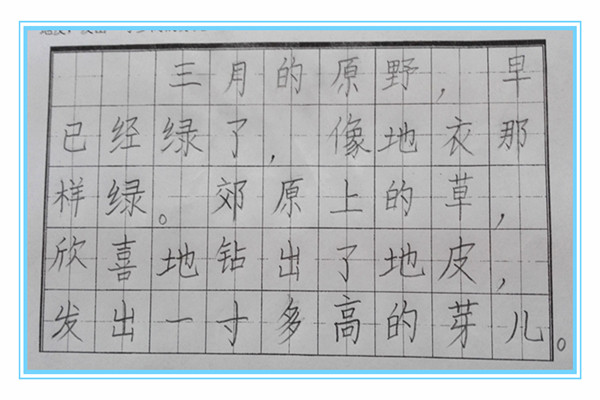 三月的原野，早
已经绿了，像地衣那
样绿。郊原上的草，
欣喜地钻出了地皮，
发出一寸多高的芽儿。